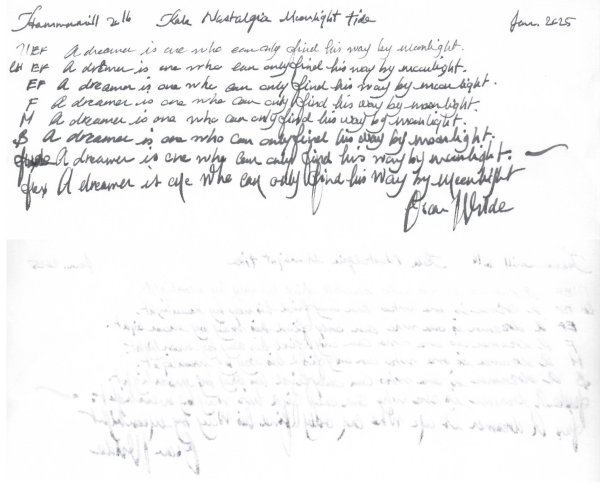 Hammermill 20 lb Kala Nostalgia Moonlight Tide Jan. 2025
UEF A dreamer is one who can only find his way by moonlight.
CM EF A dreamer is one who can only find his way by moonlight.
EF A dreamer is one who can only find his way by moonlight.
F A dreamer is one who can only find his way by moonlight.
M A dreamer is one who can only find his way by moonlight.
B A dreamer is one who can only find his way by moonlight.
A dreamer is one who can only find his way by moonlight.
flex A dreamer is one who can only find his way by moonlight
Oscar Wilde